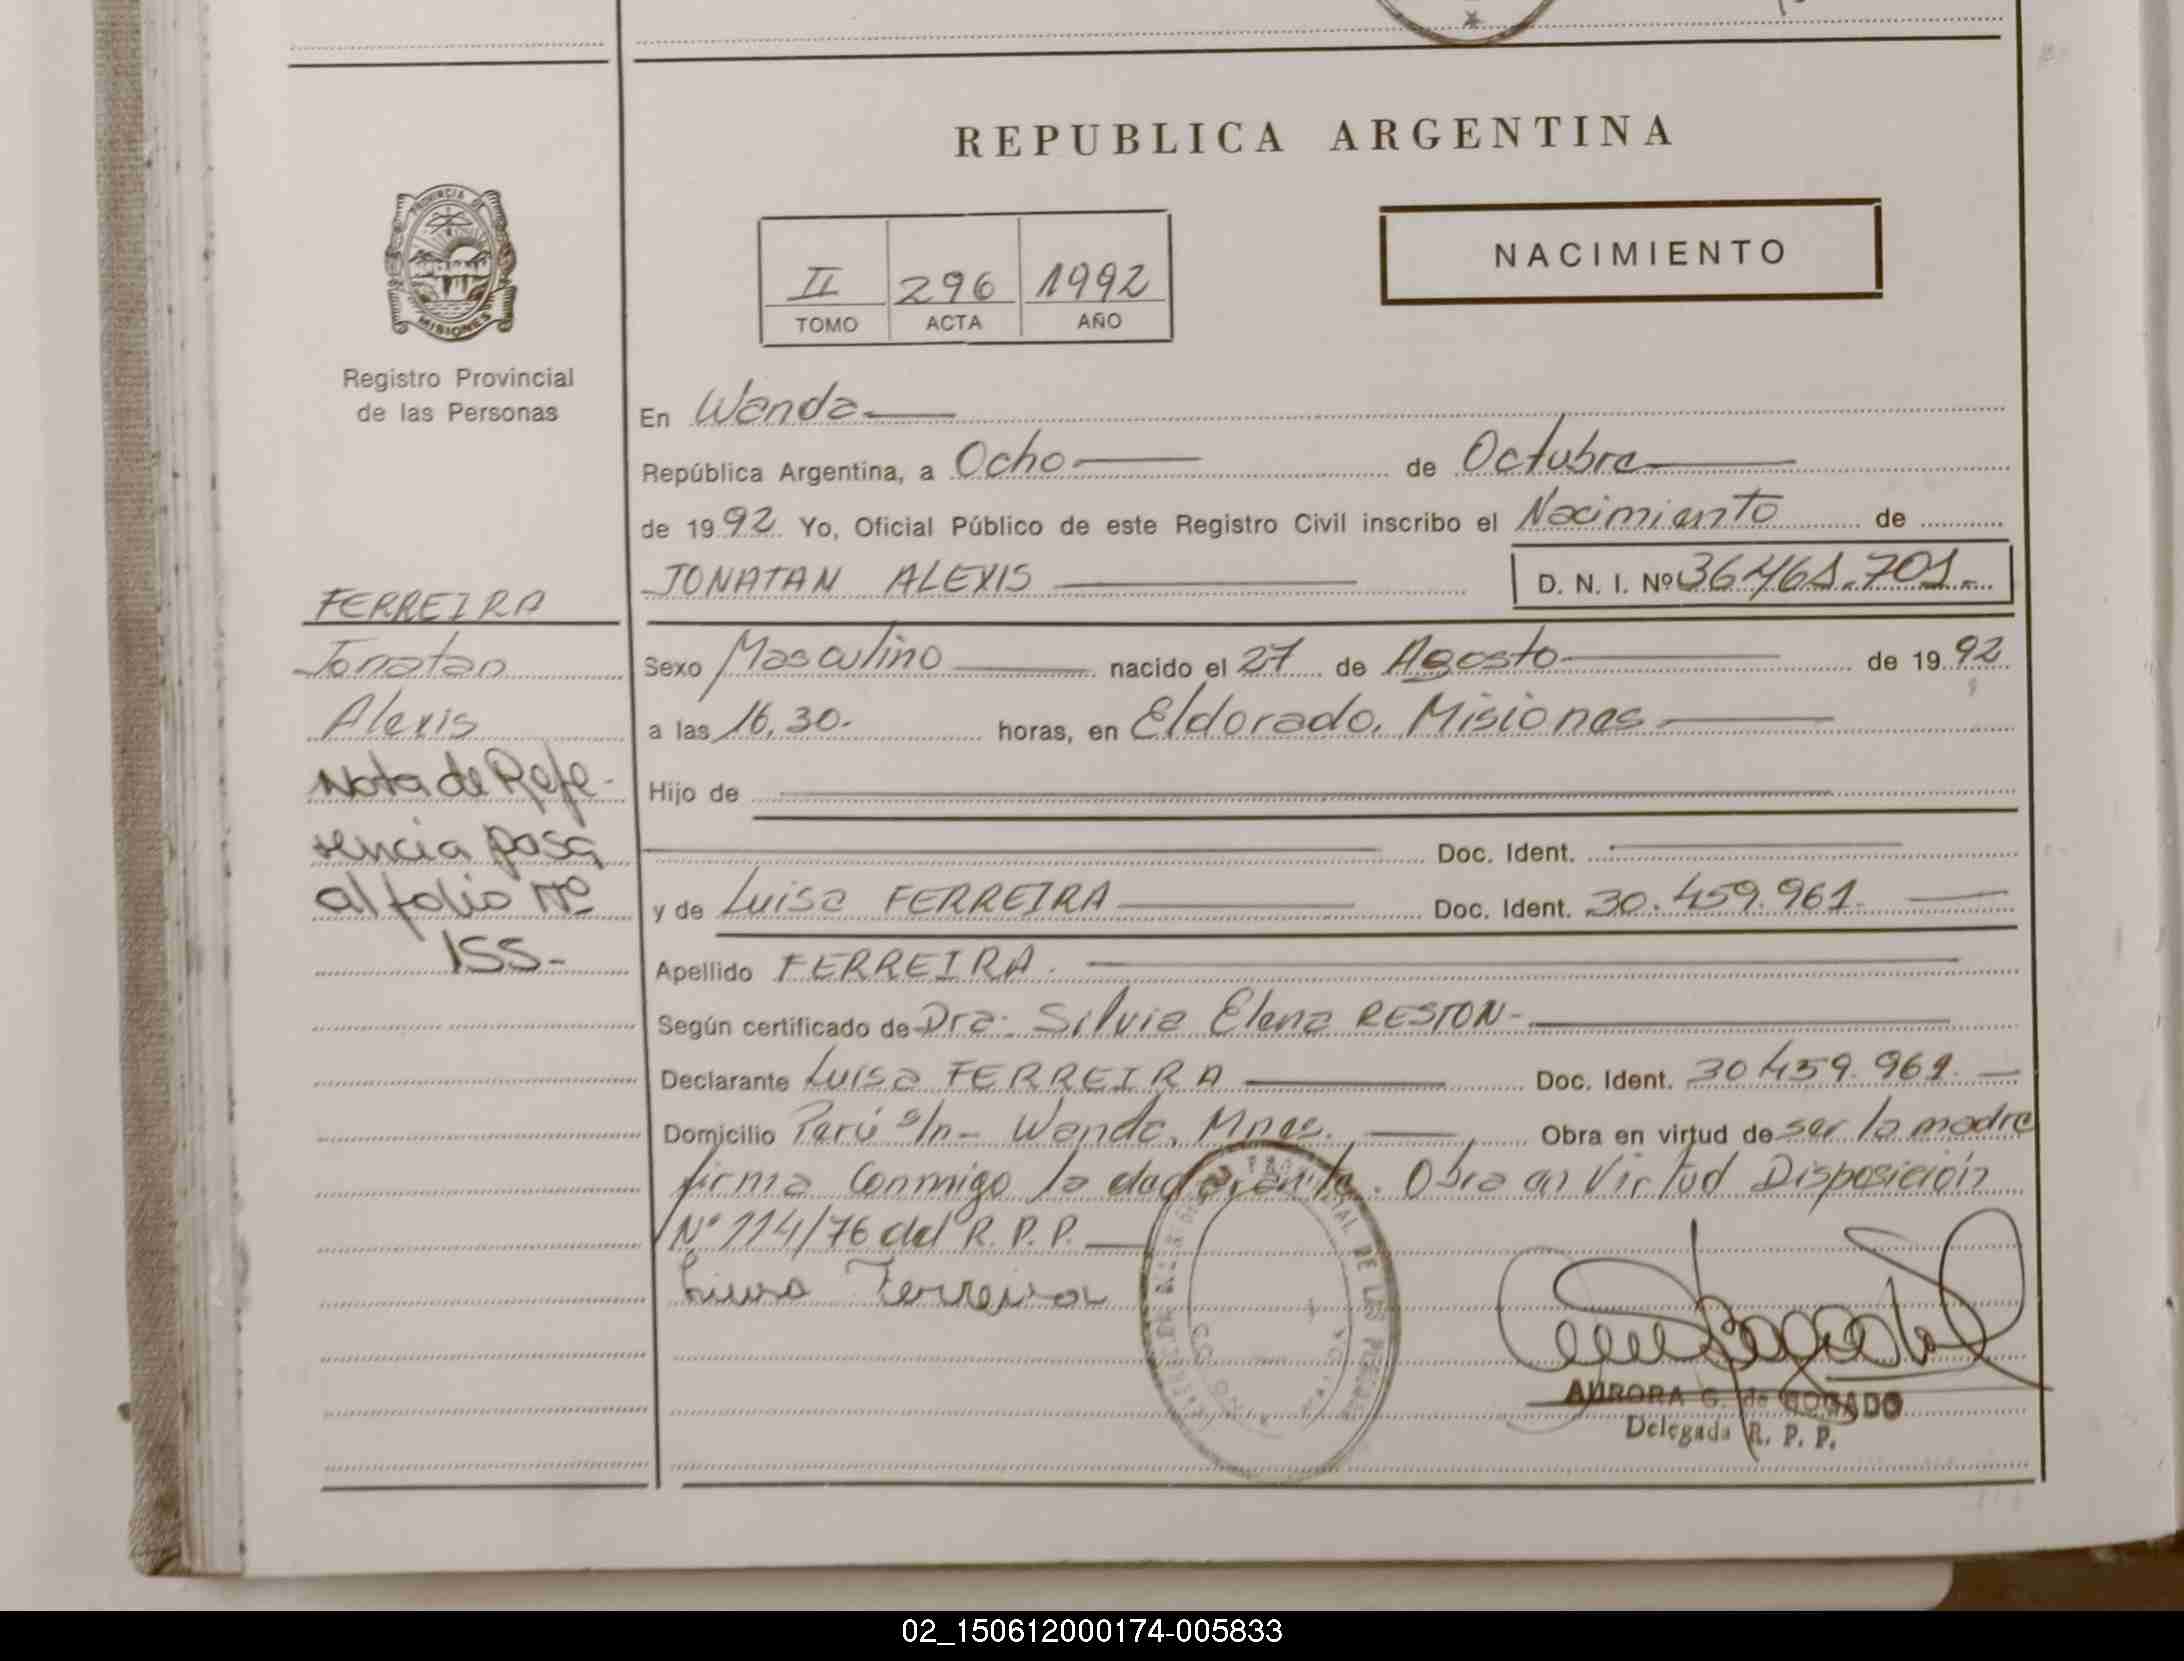 REPUBLICA ARGENTINA
PROVINCIA DE
MISIONES
Registro Provincial
de las Personas
II 296 1992
TOMO ACTA AÑO
NACIMIENTO
En Wanda
República Argentina, a Ocho de Octubre
de 1992 Yo, Oficial Público de este Registro Civil inscribo el Nacimiento de
JONATAN ALEXIS D. N. I. Nº 36461.701.-
FERREIRA
Jonatan
Alexis
Nota de Refe-
rencia pasa
al folio Nº
155-
Sexo Masculino nacido el 27 de Agosto de 1992
a las 16,30. horas, en Eldorado, Misiones
Hijo de
Doc. Ident.
y de Luisa FERREIRA Doc. Ident. 30.459.961.
Apellido FERREIRA.
Según certificado de Dra. Silvia Elena RESTON-
Declarante Luisa FERREIRA Doc. Ident. 30459.961.
Domicilio Perú s/n- Wanda, Mnes. Obra en virtud de ser la madre
firma Conmigo la Obra en Virtud Disposición
Nº 114/76 del R. P. P.
Luisa Ferreira
AURORA G. de BOGADO
Delegada R. P. P.
02_150612000174-005833